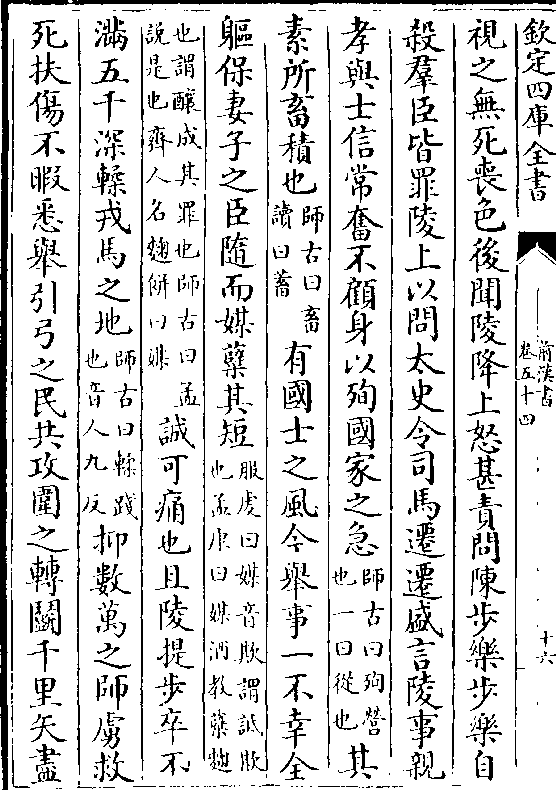 欽定四庫全書
前漢書
卷五十四
十六
視之無死喪色後聞陵降上怒甚責問陳步樂步樂自
殺羣臣皆罪陵上以問太史令司馬遷遷盛言陵事親
孝與士信常奮不顧身以殉國家之急師古曰殉營也一曰從也其
素所畜積也師古曰畜讀曰蓄有國士之風今舉事一不幸全
軀保妻子之臣隨而媒糵其短服虔曰媒音欺謂詆欺也孟康曰媒酒教糵麴
也謂釀成其罪也師古曰孟說是也齊人名麴餅曰媒誠可痛也且陵提步卒不
滿五千深輮戎馬之地師古曰輮踐也音人九反抑數萬之師虜救
死扶傷不暇悉舉引弓之民共攻圍之轉鬭千里矢盡